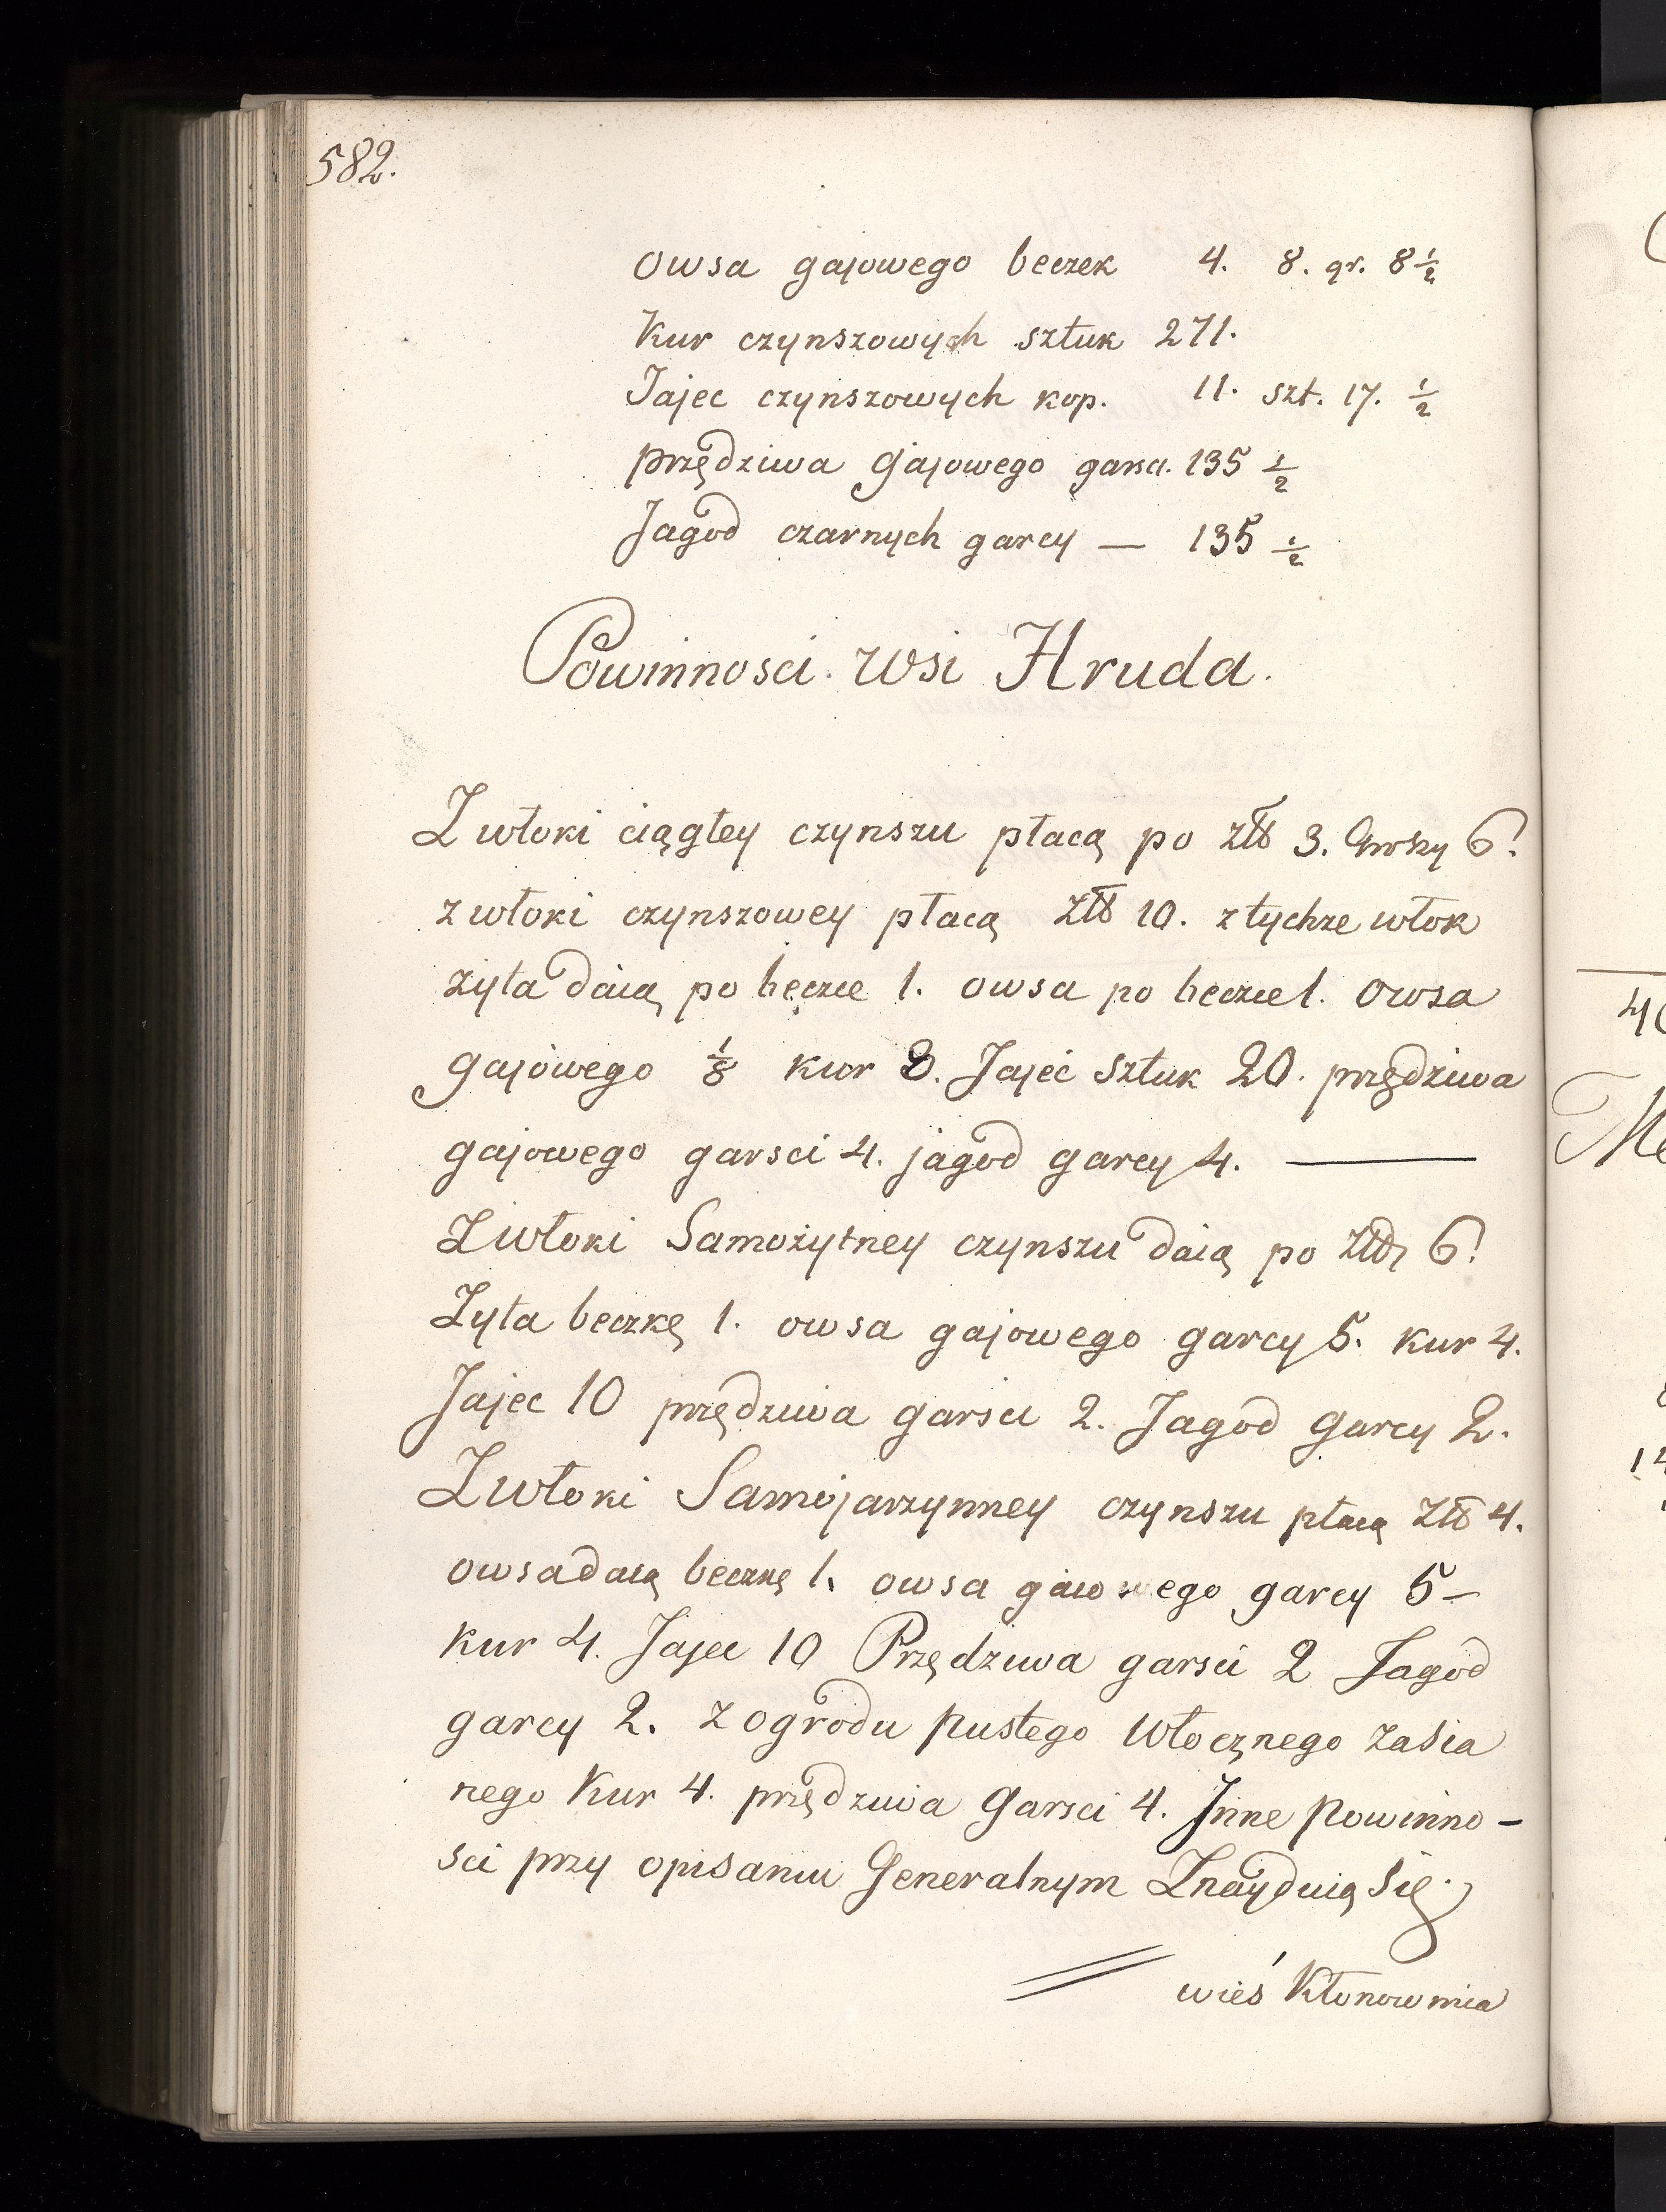 582.
owsa gajowego beczek 4. 8. gr. 8 1/2
Kur czynszowych sztuk 271.
Jajec czynszowych kop. 11. szt. 17. 1/2
przędziwa gajowego garsci. 135 1/2
Jagod czarnych garcy — 135 1/2
Powinnosci wsi Hruda.
Z włoki ciągłey czynszu płacą po zł 3. Groszy 6.
z włoki czynszowey płacą zł 10. z tychze włok
zyta daią po beczce 1. owsa po beczce 1. owsa
gajowego 1/8 kur 8. Jajec sztuk 20. przędziwa
gajowego garsci 4. jagod garcy 4. —
Z włoki Samożytney czynszu daią po zł 6.
Zyta beczkę 1. owsa gajowego garcy 5. kur 4.
Jajec 10 przędziwa garsci 2. Jagod garcy 2.
Z włoki Samojarzynney czynszu płacą zł 4.
owsa daią beczkę 1. owsa gaiowego garcy 5 —
kur 4. Jajec 10 Przędziwa garsci 2 Jagod
garcy 2. z ogrodu pustego Włocznego zasia
nego Kur 4. przędziwa garsci 4. Jnne powinno-
sci przy opisaniu Generalnym Znayduią się.
wieś Kłonownica